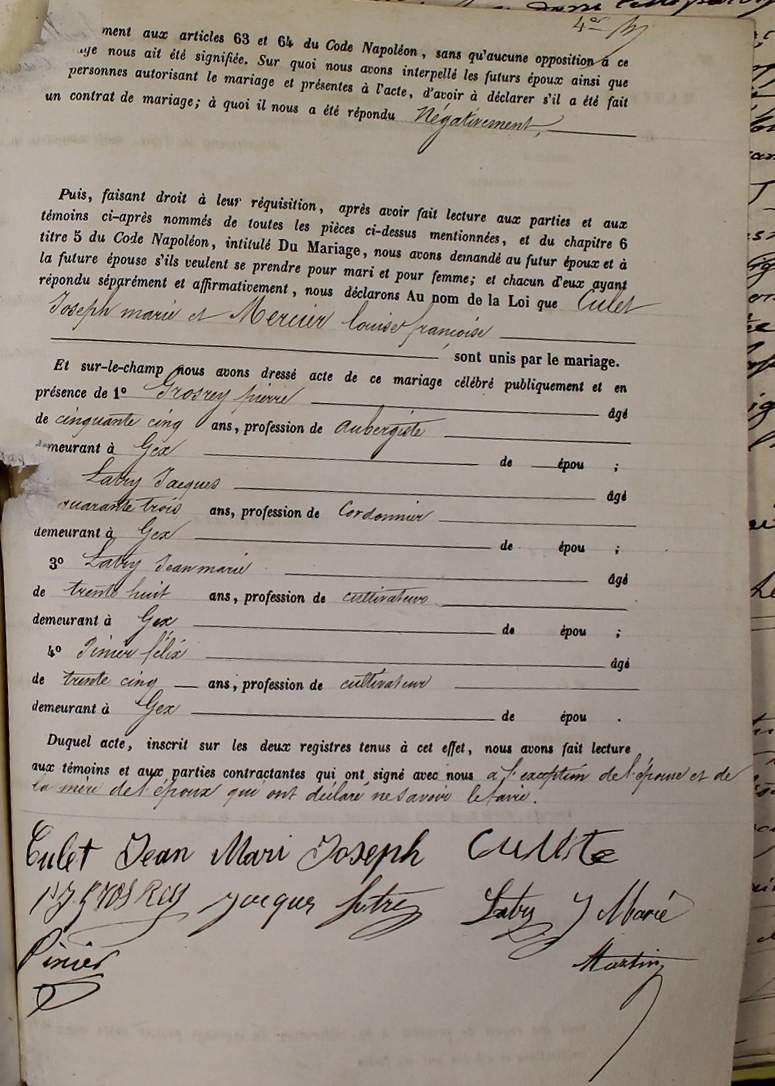 ment aux articles 63 et 64 du Code Napoléon, sans qu'aucune opposition à ce
nous ait été signifiée. Sur quoi nous avons interpellé les futurs époux ainsi que
personnes autorisant le mariage et présentes à l'acte, d'avoir à déclarer s'il a été fait
un contrat de mariage; à quoi il nous a été répondu Négativement,
Puis, faisant droit à leur réquisition, après avoir fait lecture aux parties et aux
témoins ci-après nommés de toutes les pièces ci-dessus mentionnées, et du chapitre 6
titre 5 du Code Napoléon, intitulé Du Mariage, nous avons demandé au futur époux et à
la future épouse s'ils veulent se prendre pour mari et pour femme; et chacun d'eux ayant
répondu séparément et affirmativement, nous déclarons Au nom de la Loi que Culet
Joseph marie et Mercier louise francoise
sont unis par le mariage.
Et sur-le-champ nous avons dressé acte de ce mariage célébré publiquement et en
présence de 1° Grosrey pierre âgé
de cinquante cinq ans, profession de aubergiste
demeurant à Gex de épou ;
Latry Jacques âgé
quarante trois ans, profession de Cordonnier
demeurant à Gex de épou ;
3° Latry Jean marie âgé
de trente huit ans, profession de cultivateur
demeurant à Gex de épou ;
4° Pinier félix âgé
de trente cinq ans, profession de cultivateur
demeurant à Gex de épou .
Duquel acte, inscrit sur les deux registres tenus à cet effet, nous avons fait lecture
aux témoins et aux parties contractantes qui ont signé avec nous a l'exception de l'épouse et de
la mère de l'époux qui ont déclaré ne savoir le faire.
Culet Jean Mari Joseph
P J GROSREY Jacques Latry J Marie
Pinier Martin